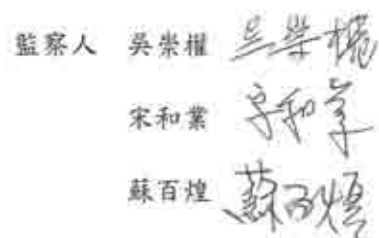 監察人 吳崇權 吳崇權
宋和業 宋和業
蘇百煌 蘇百煌